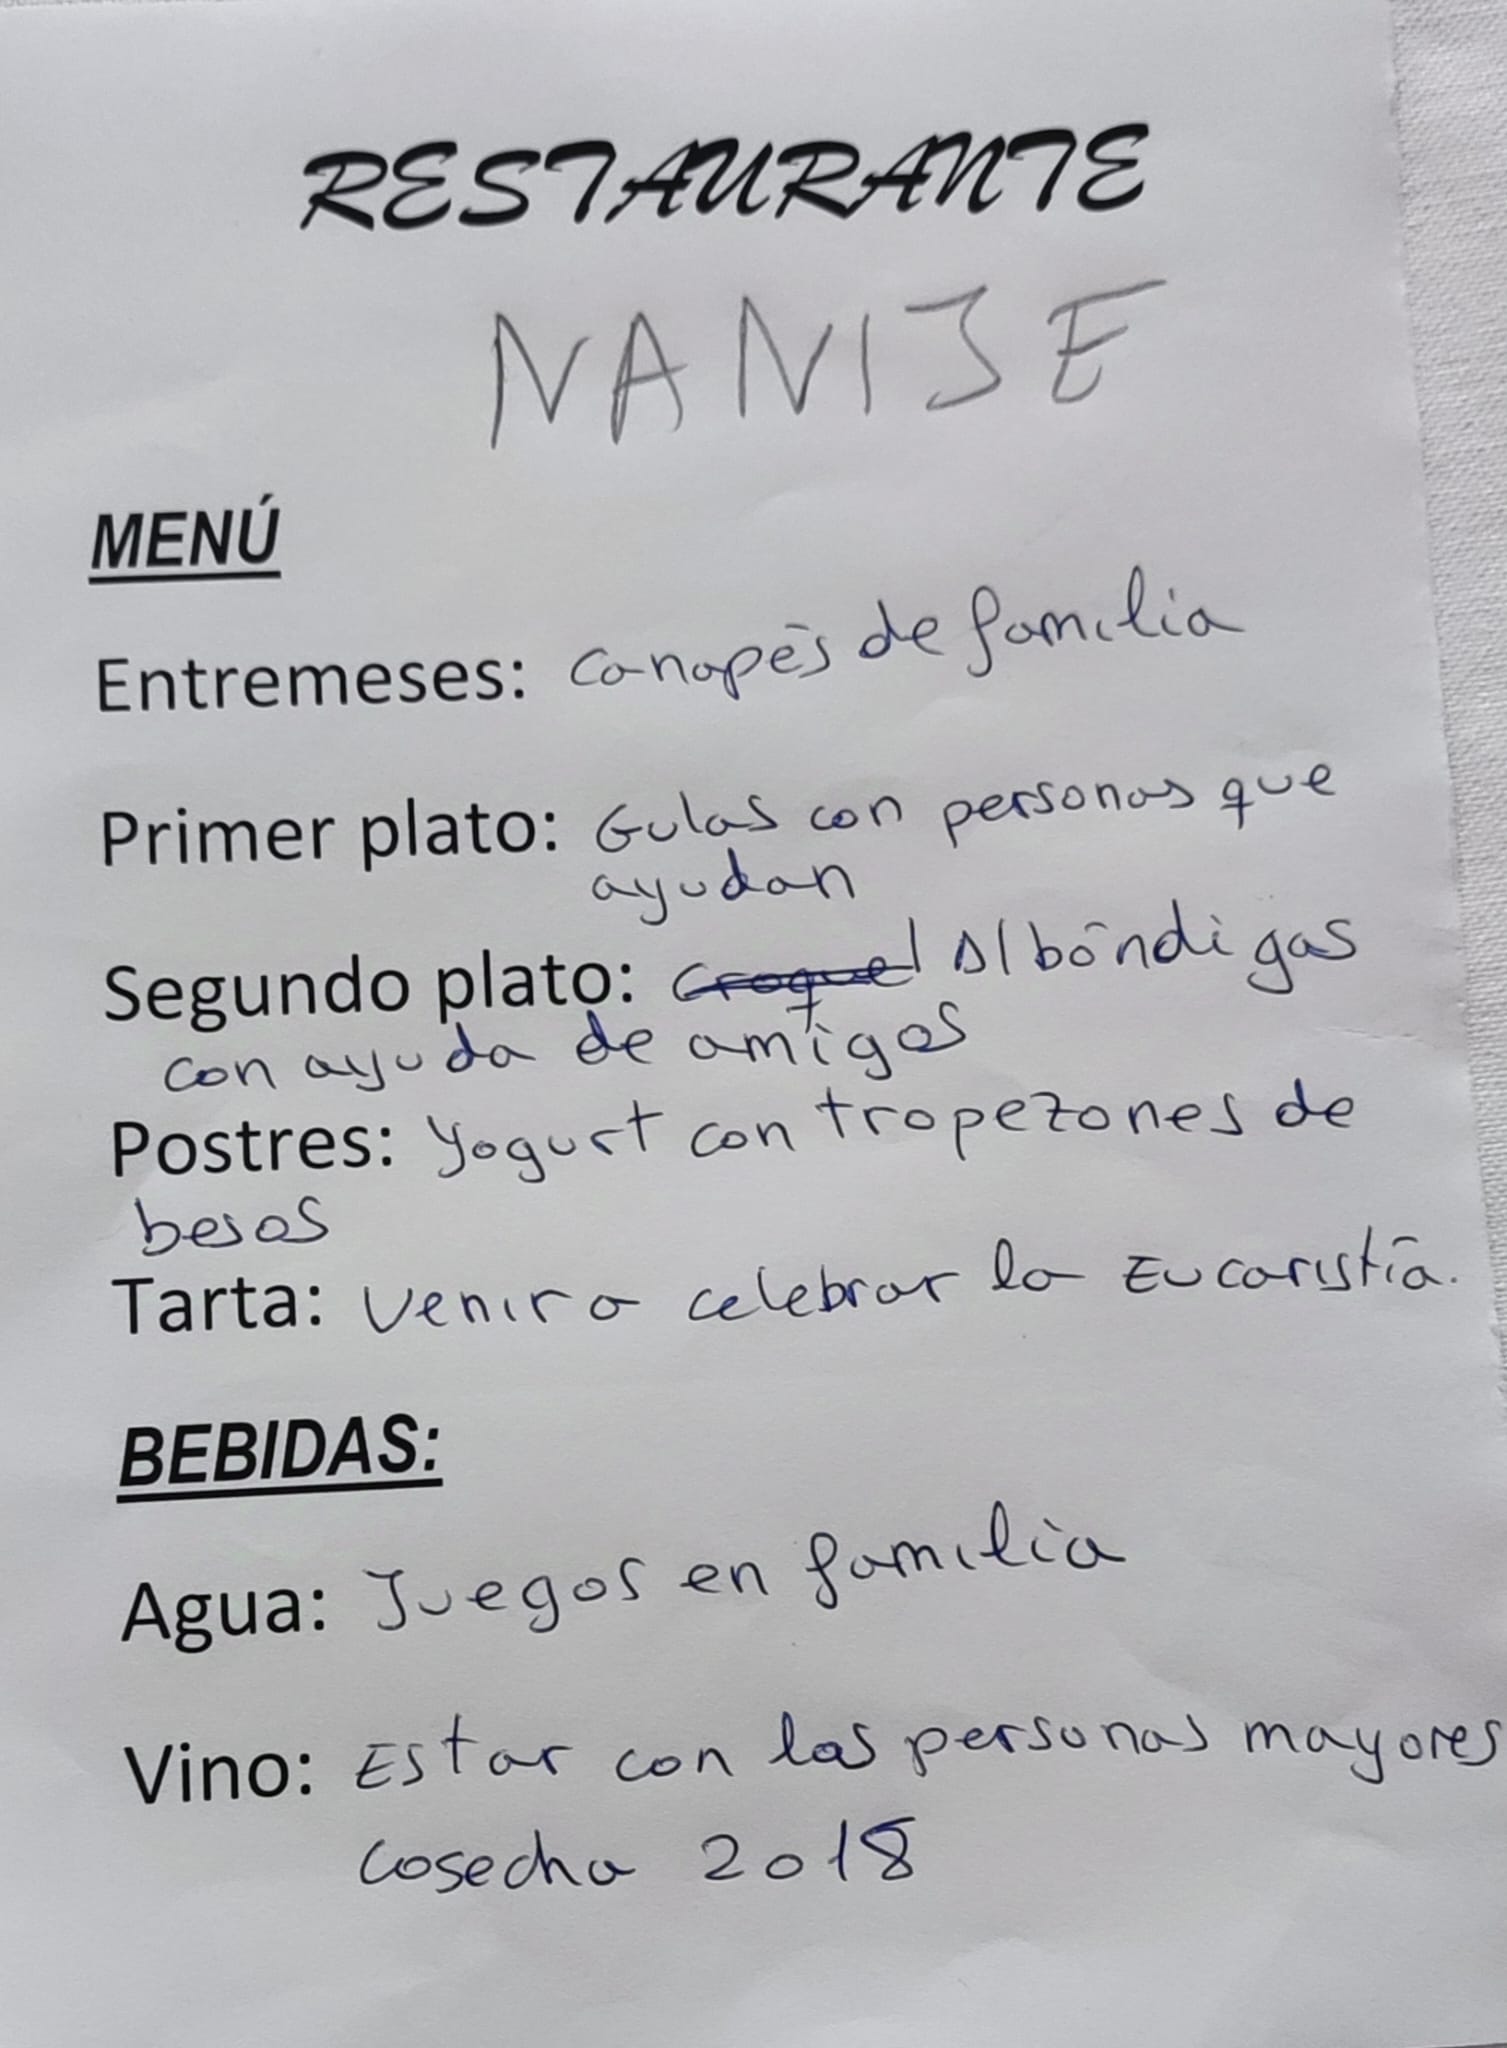 RESTAURANTE
NANIJE
MENÚ
Entremeses: Canapés de familia
Primer plato: Gulas con personas que
ayudan
Segundo plato: Croquet Albóndigas
con ayuda de amigos
Postres: Yogurt con tropezones de
besos
Tarta: Venir a celebrar la Eucaristía.
BEBIDAS:
Agua: Juegos en familia
Vino: Estar con las personas mayores
Cosecha 2018